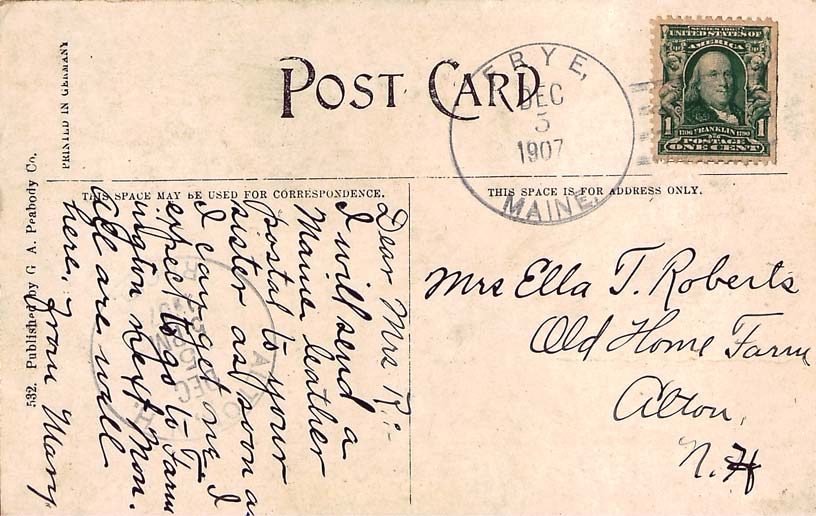 POST CARD
FRYE,
DEC
5
1907
MAINE.
SERIES 1902
UNITED STATES OF
AMERICA
1 1706 FRANKLIN 1790 1
POSTAGE
ONE CENT
PRINTED IN GERMANY
532. Published by G. A. Peabody Co.
THIS SPACE MAY BE USED FOR CORRESPONDENCE.
THIS SPACE IS FOR ADDRESS ONLY.
Dear Mrs R.:-
I will send a
Maine leather
postal to your
sister as soon as
I can get one. I
expect to go to Farm
ington next Mon.
All are well
here. From Mary.
Mrs Ella T. Roberts
Old Home Farm
Alton,
N.H
ALTON
DEC